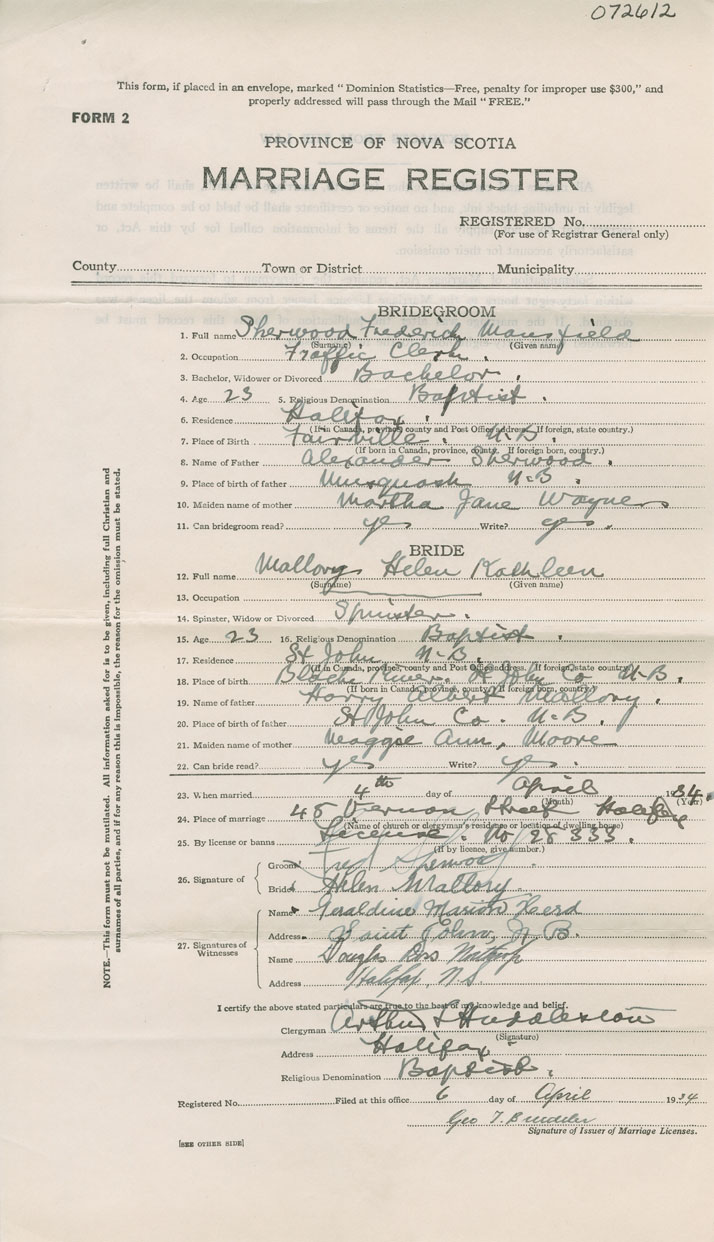 072612
This form, if placed in an envelope, marked "Dominion Statistics—Free, penalty for improper use $300," and
properly addressed will pass through the Mail "FREE."
FORM 2
PROVINCE OF NOVA SCOTIA
MARRIAGE REGISTER
REGISTERED No.
(For use of Registrar General only)
County Town or District Municipality
BRIDEGROOM
1. Full name Sherwood Frederick Mansfield
(Surname) (Given name)
2. Occupation Traffic Clerk.
3. Bachelor, Widower or Divorced Bachelor.
4. Age 23 5. Religious Denomination Baptist.
6. Residence Halifax.
(If in Canada, province, county and Post Office address. If foreign, state country.)
7. Place of Birth Fairville. N.B.
(If born in Canada, province, county. If foreign born, country.)
8. Name of Father Alexander Sherwood.
9. Place of birth of father Musquash N-B.
10. Maiden name of mother Martha Jane Wayne
11. Can bridegroom read? yes Write? yes.
BRIDE
12. Full name Mallory Helen Kathleen
(Surname) (Given name)
13. Occupation
14. Spinster, Widow or Divorced Spinster.
15. Age 23 16. Religious Denomination Baptist.
17. Residence St John N-B.
(If in Canada, province, county and Post Office address. If foreign, state country.)
18. Place of birth Black River. St John Co N-B.
(If born in Canada, province, county. If foreign born, country.)
19. Name of father Harry Albert Mallory.
20. Place of birth of father St John Co. N-B.
21. Maiden name of mother Maggie Ann, Moore
22. Can bride read? yes Write? yes.
23. When married 4th day of April 1934.
(Month) (Year)
24. Place of marriage 45 Vernon Street Halifax
(Name of church or clergyman's residence or location of dwelling house)
25. By license or banns License. No 28333.
(If by licence, give number.)
26. Signature of Groom Fred Sherwood
Bride Helen Mallory
27. Signatures of Witnesses
Name Geraldine Marion Heard
Address Saint John, N.B.
Name Douglas Ross
Address Halifax, N.S.
I certify the above stated particulars are true to the best of my knowledge and belief.
Clergyman Arthur S Huddleston
(Signature)
Address Halifax
Religious Denomination Baptist.
Registered No. Filed at this office 6 day of April 1934
Geo T.
Signature of Issuer of Marriage Licenses.
[SEE OTHER SIDE]
NOTE.—This form must not be mutilated. All information asked for is to be given, including full Christian and
surnames of all parties, and if for any reason this is impossible, the reason for the omission must be stated.